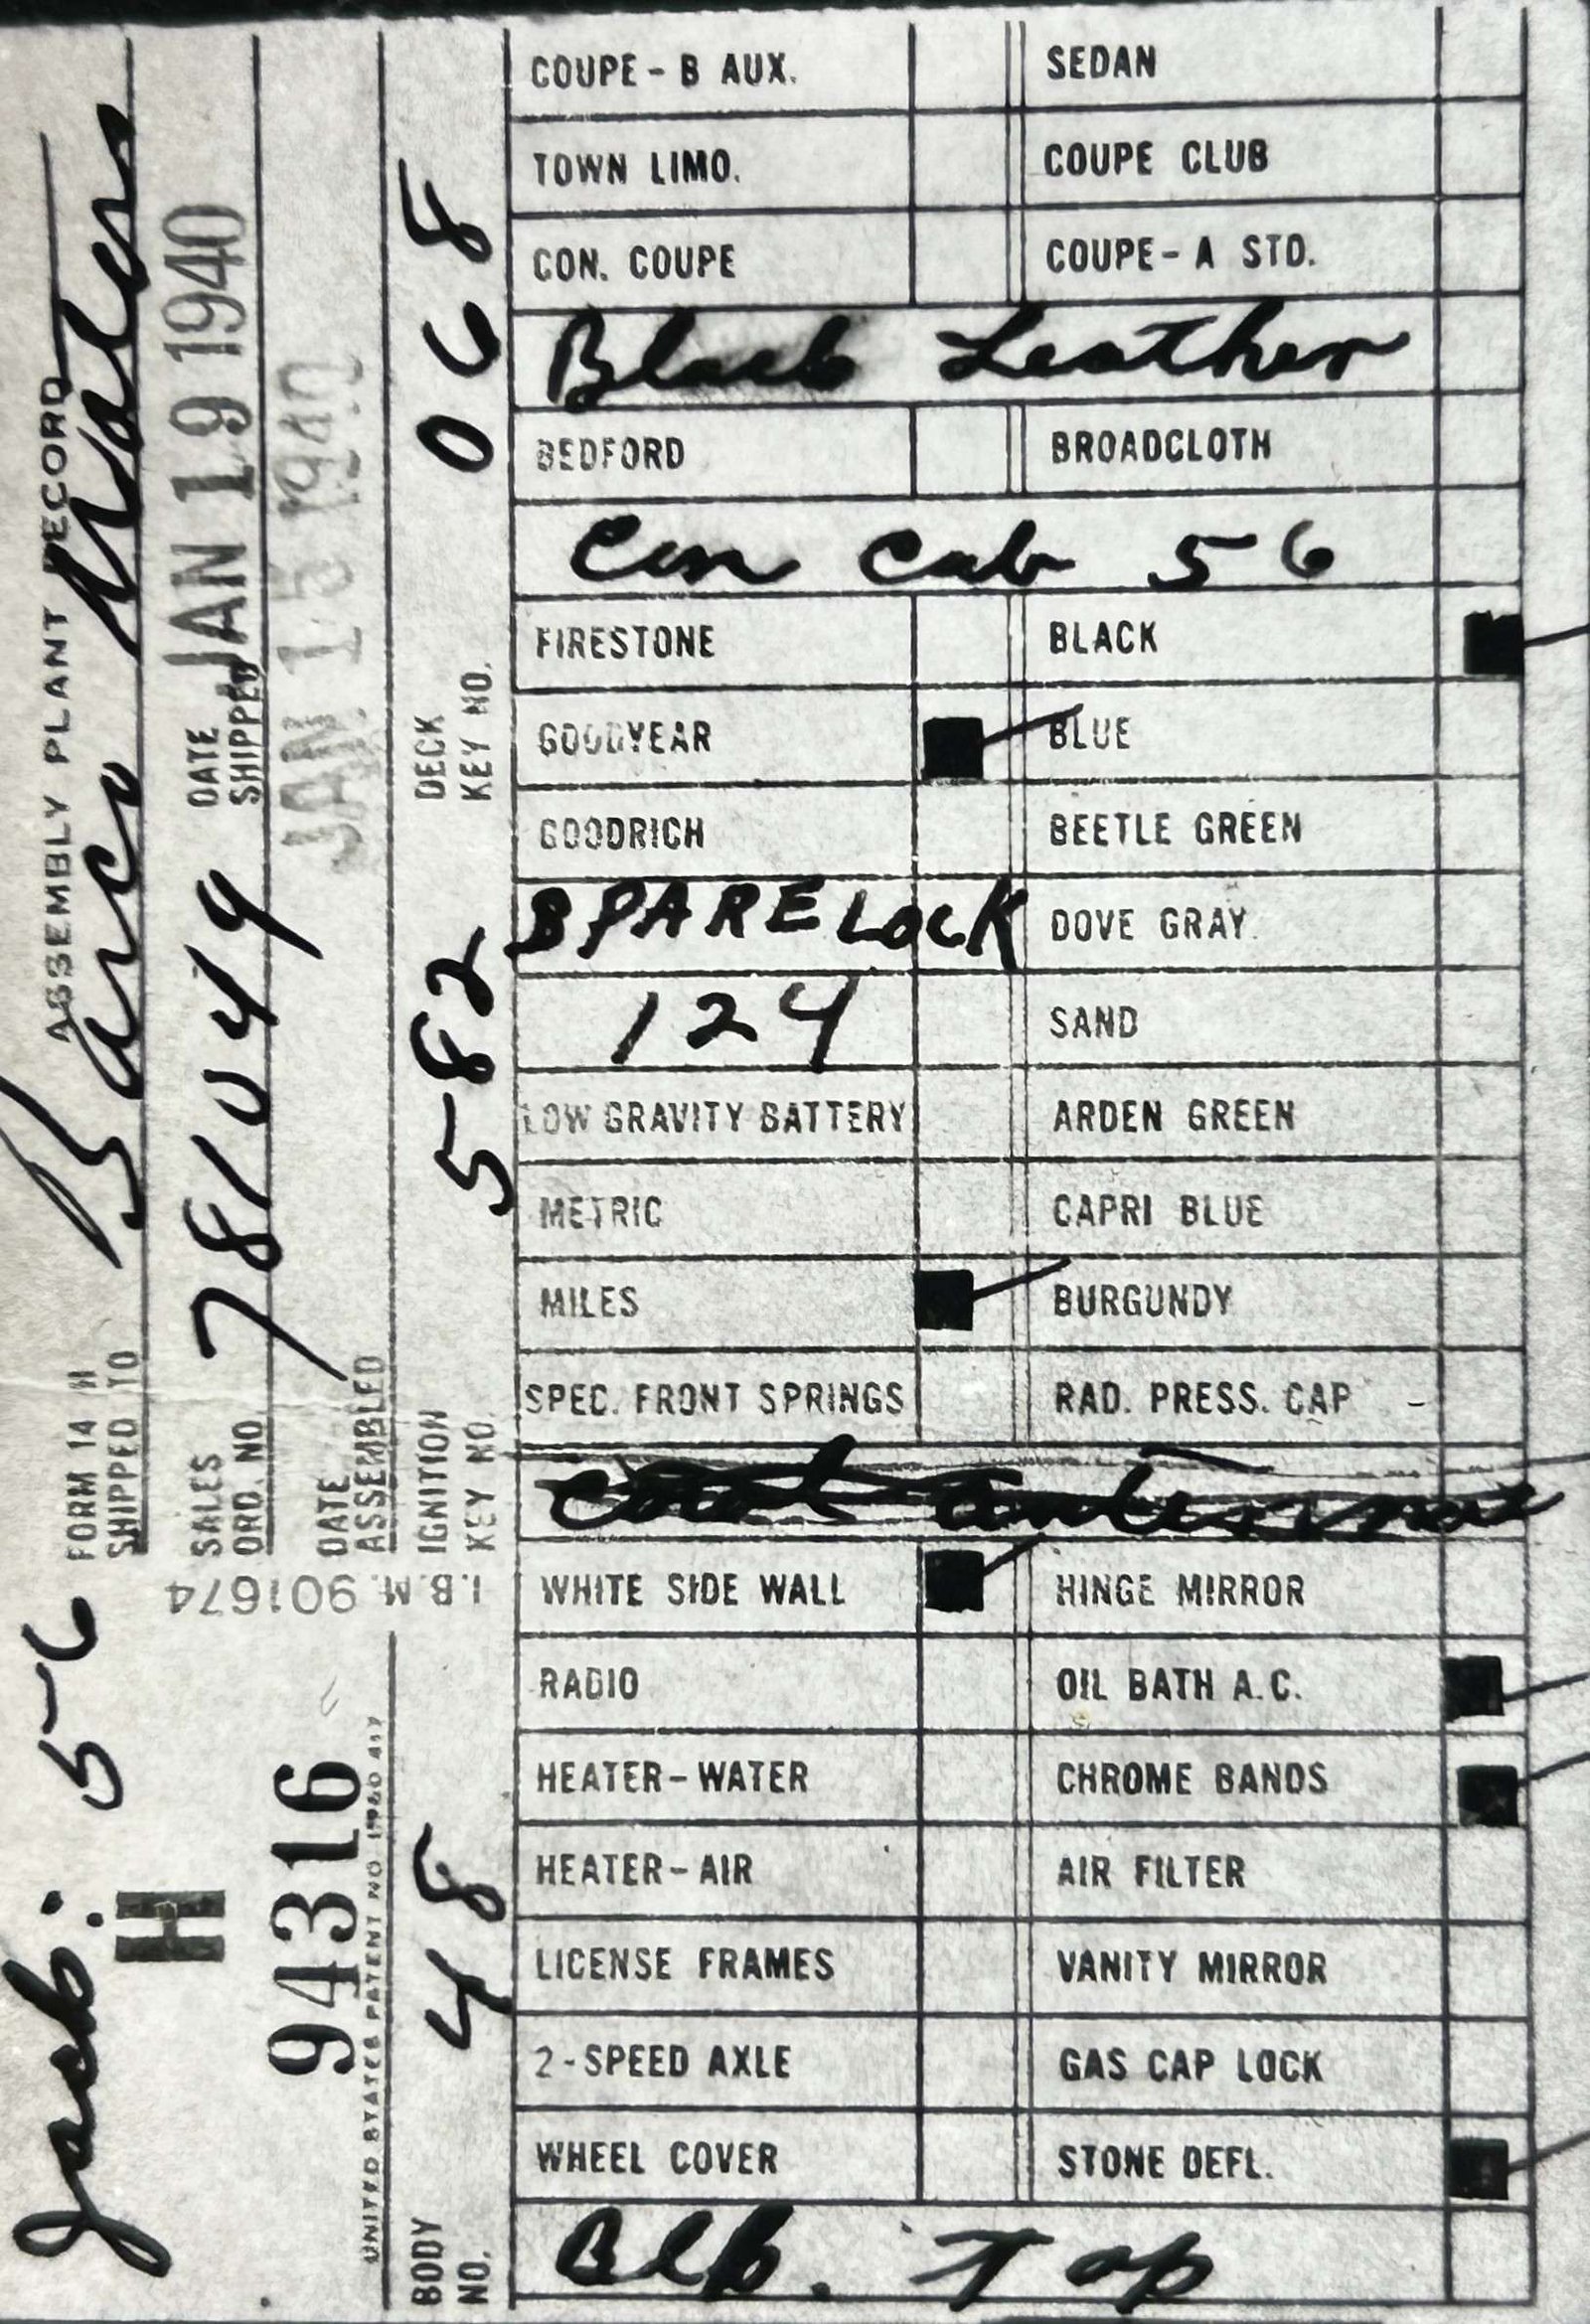 FORM 14 H ASSEMBLY PLANT RECORD
SHIPPED TO Barco Motors
SALES ORD. NO. 781049 DATE SHIPPED JAN 19 1940
DATE ASSEMBLED JAN 15 1940
IGNITION KEY NO. 582 DECK KEY NO. 068
I.B.M. 901674
Jack: 56
H
94316
UNITED STATES PATENT NO
BODY NO. 48
COUPE - B AUX. SEDAN
TOWN LIMO. COUPE CLUB
CON. COUPE COUPE - A STD.
Black Leather
BEDFORD BROADCLOTH
Con Cab 56
FIRESTONE BLACK
GOODYEAR BLUE
GOODRICH BEETLE GREEN
SPARE LOCK DOVE GRAY
124 SAND
LOW GRAVITY BATTERY ARDEN GREEN
METRIC CAPRI BLUE
MILES BURGUNDY
SPEC. FRONT SPRINGS RAD. PRESS. CAP -
WHITE SIDE WALL HINGE MIRROR
RADIO OIL BATH A.C.
HEATER - WATER CHROME BANDS
HEATER - AIR AIR FILTER
LICENSE FRAMES VANITY MIRROR
2 - SPEED AXLE GAS CAP LOCK
WHEEL COVER STONE DEFL.
Blk. Top